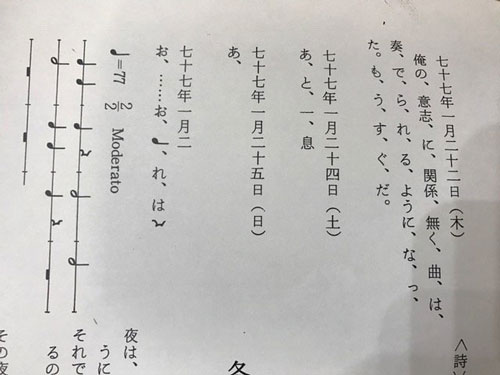 七十七年一月二十二日（木）
俺の、意志、に、関係、無く、曲、は、
奏、で、ら、れ、る、ように、な、っ、
た。も、う、す、ぐ、だ。
七十七年一月二十四日（土）
あ、と、一、息
七十七年一月二十五日（日）
あ、
七十七年一月二
お、……お、♩、れ、は
♩=77 2/2 Moderato
＜詩
冬
夜は、
うに
それで
るの
その夜